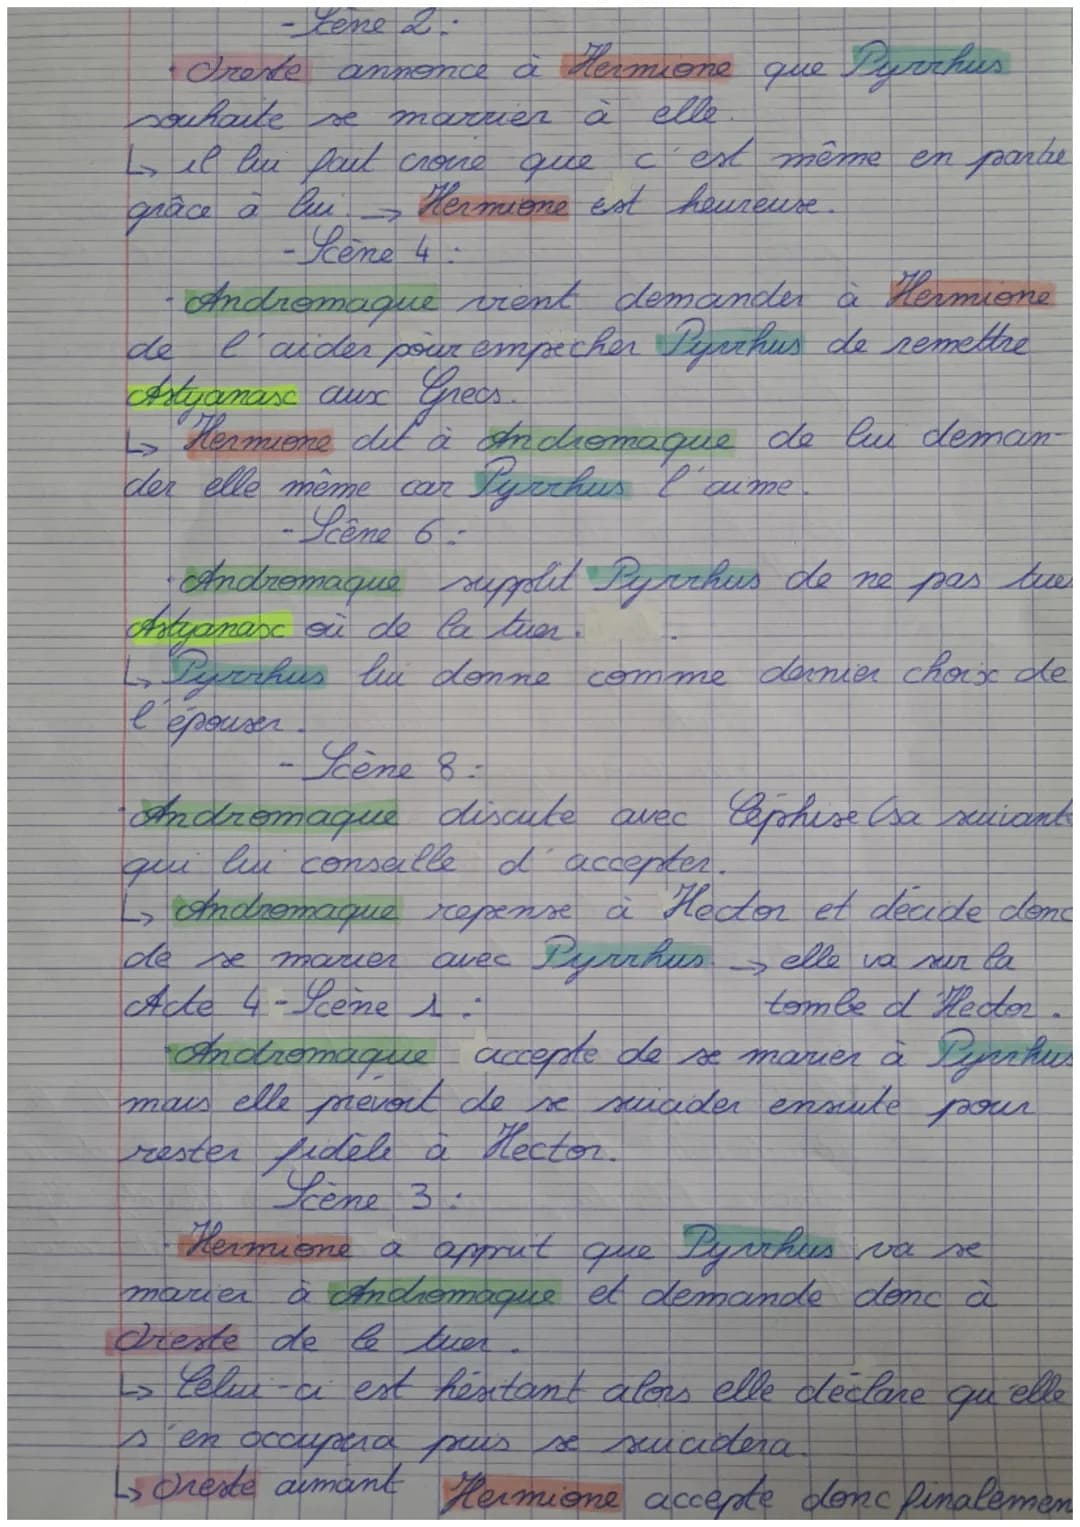 - Scène 2 :
· Oreste annonce à Hermione que Pyrrhus
souhaite se marrier à elle.
↳ il lui fait croire que c'est même en partie
grâce à lui. → Hermione est heureuse.
- Scène 4 :
· Andromaque vient demander à Hermione
de l'aider pour empecher Pyrrhus de remettre
Astyanax aux Grecs.
↳ Hermione dit à Andromaque de lui deman-
der elle même car Pyrrhus l'aime.
- Scène 6 :
· Andromaque supplit Pyrrhus de ne pas tuer
Astyanax où de la tuer.
↳ Pyrrhus lui donne comme dernier choix de
l'épouser.
- Scène 8 :
· Andromaque discute avec Céphise (sa suivant
qui lui conseille d'accepter.
↳ Andromaque repense à Hector et décide donc
de se marier avec Pyrrhus. → elle va sur la
tombe d'Hector.
Acte 4 - Scène 1 :
· Andromaque accepte de se marier à Pyrrhus
mais elle prévoit de se suicider ensuite pour
rester fidèle à Hector.
Scène 3 :
· Hermione a apprit que Pyrrhus va se
marier à Andromaque et demande donc à
Oreste de le tuer.
↳ Celui-ci est hésitant alors elle déclare qu'elle
s'en occupera puis se suicidera.
↳ Oreste aimant Hermione accepte donc finalemen